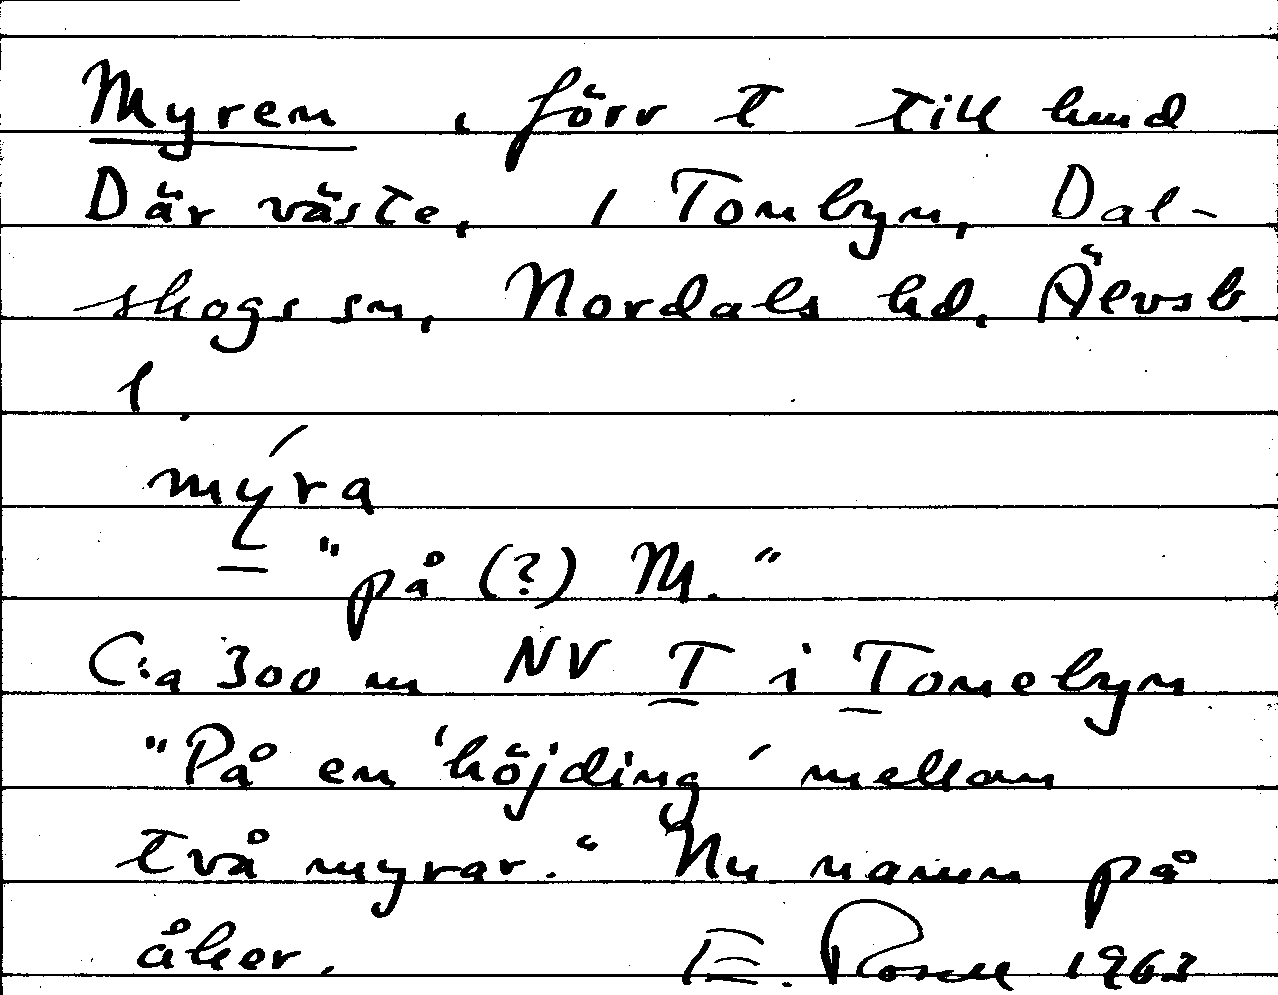 Myren, förv t till hmd
Där väste, i Tonbyn, Dal-
skogs sn, Nordals hd, Älvsb
l.
mýra
"på (?) M."
C:a 300 m NV T i Tonebyn
"På en 'höjding' mellan
två myrar." Nu namn på
åker. E. Rosell 1963